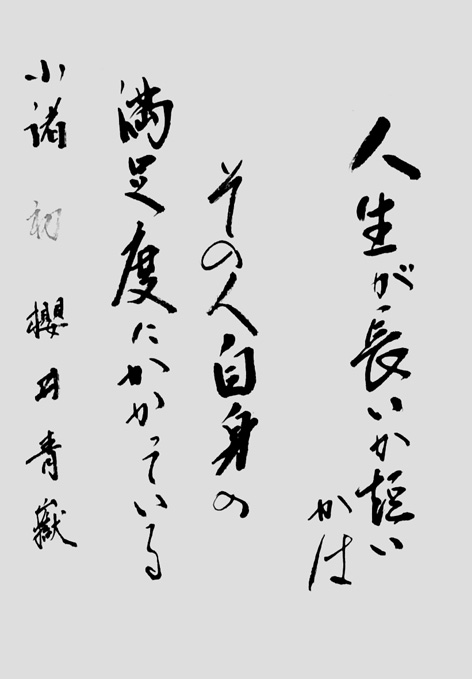 人生が長いか短い
かは
その人自身の
満足度にかかっている
小諸 初 櫻井青嶽